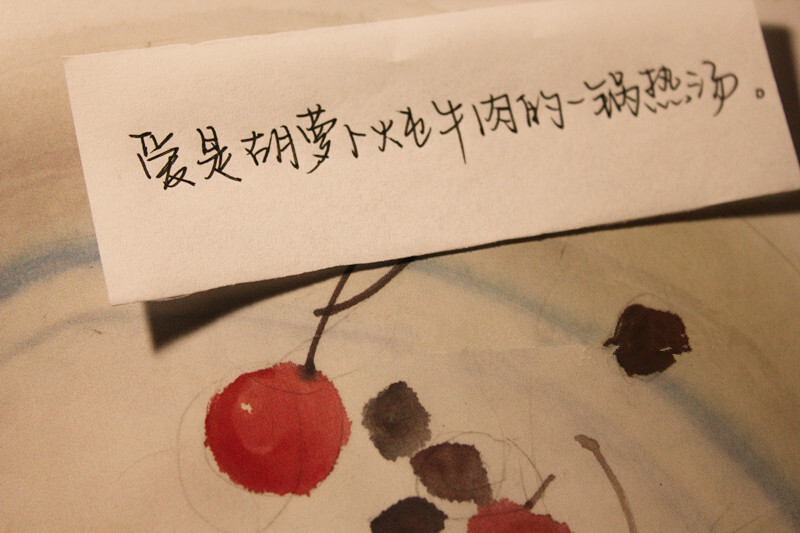 爱是胡萝卜炖牛肉的一锅热汤。